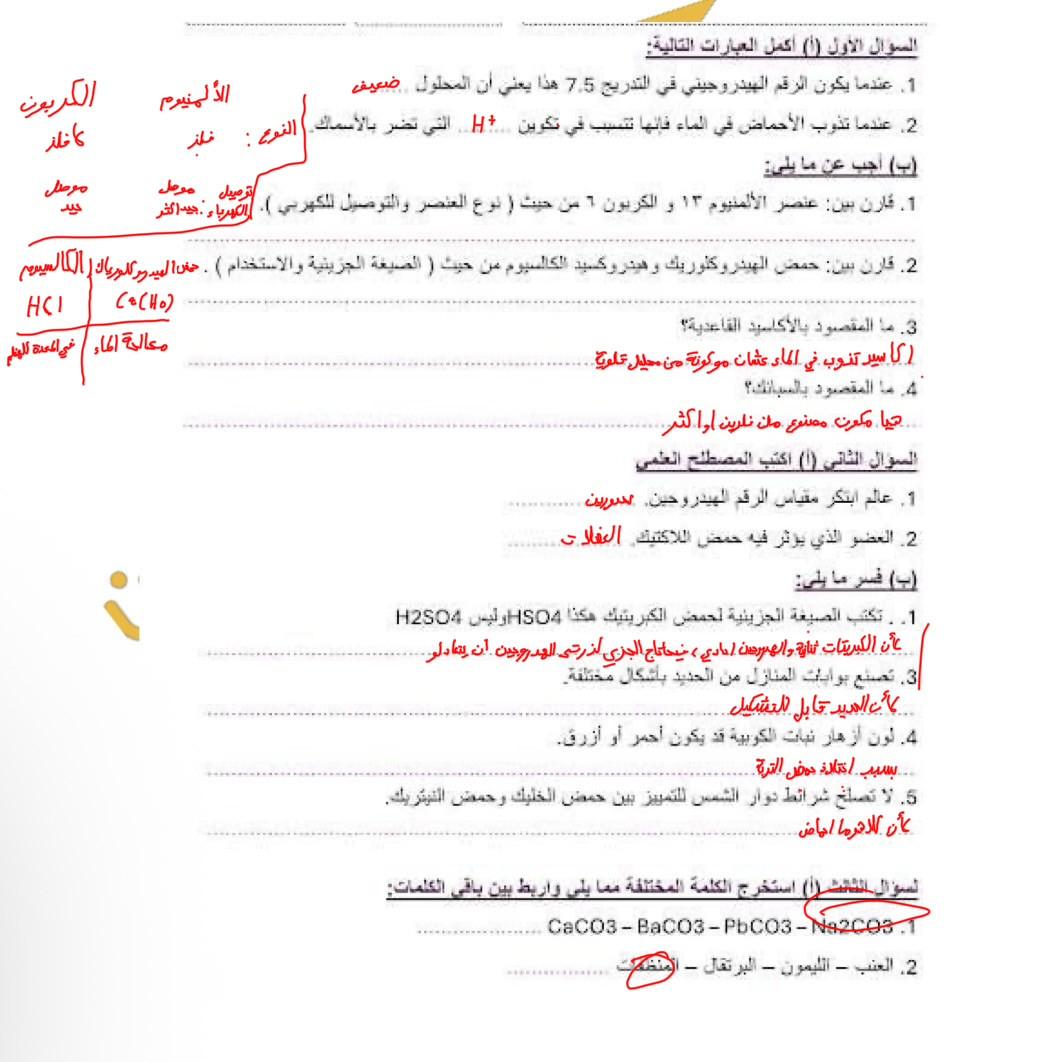 السؤال الأول (أ) أكمل العبارات التالية:
1. عندما يكون الرقم الهيدروجيني في التدريج 7.5 هذا يعني أن المحلول ضعيف
2. عندما تذوب الأحماض في الماء فإنها تتسبب في تكوين ...H+... التي تضر بالأسماك.
الألمنيوم الكربون
النوع: فلز لافلز
توصيل الكهرباء: موصل جيد اكثر موصل جيد
(ب) أجب عن ما يلي:
1. قارن بين: عنصر الألمنيوم ١٣ و الكربون ٦ من حيث ( نوع العنصر والتوصيل للكهربي ).
2. قارن بين: حمض الهيدروكلوريك وهيدروكسيد الكالسيوم من حيث ( الصيغة الجزيئية والاستخدام ).
حمض الهيدروكلوريك الكالسيوم
Ca(HO) HCl
معالجة الماء في المعدة للهضم
3. ما المقصود بالأكاسيد القاعدية؟
اكاسيد تذوب في الماء عشان مكونة من محاليل قلوية
4. ما المقصود بالسبائك؟
مكون مصنوع من فلزين او اكثر
السؤال الثاني (أ) اكتب المصطلح العلمي
1. عالم ابتكر مقياس الرقم الهيدروجين. سورين
2. العضو الذي يؤثر فيه حمض اللاكتيك. العضلات
(ب) فسر ما يلي:
1. . تكتب الصيغة الجزيئية لحمض الكبريتيك هكذا HSO4وليس H2SO4
لأن الكبريتات ثنائية والهيدروجين احادي، فيحتاج الجزي لذرتي الهيدروجين أن يتعادلو
3. تصنع بوابات المنازل من الحديد بأشكال مختلفة.
لأن الحديد قابل للتشكيل
4. لون أزهار نبات الكوبية قد يكون أحمر أو أزرق.
بسبب اختلاف حمض التربة
5. لا تصلح شرائط دوار الشمس للتمييز بين حمض الخليك وحمض النيتريك.
لأن كلاهما احماض
لسؤال الثالث (أ) استخرج الكلمة المختلفة مما يلي واربط بين باقي الكلمات:
1. CaCO3 – BaCO3 – PbCO3 – Na2CO3
2. العنب – الليمون – البرتقال – المنظفات